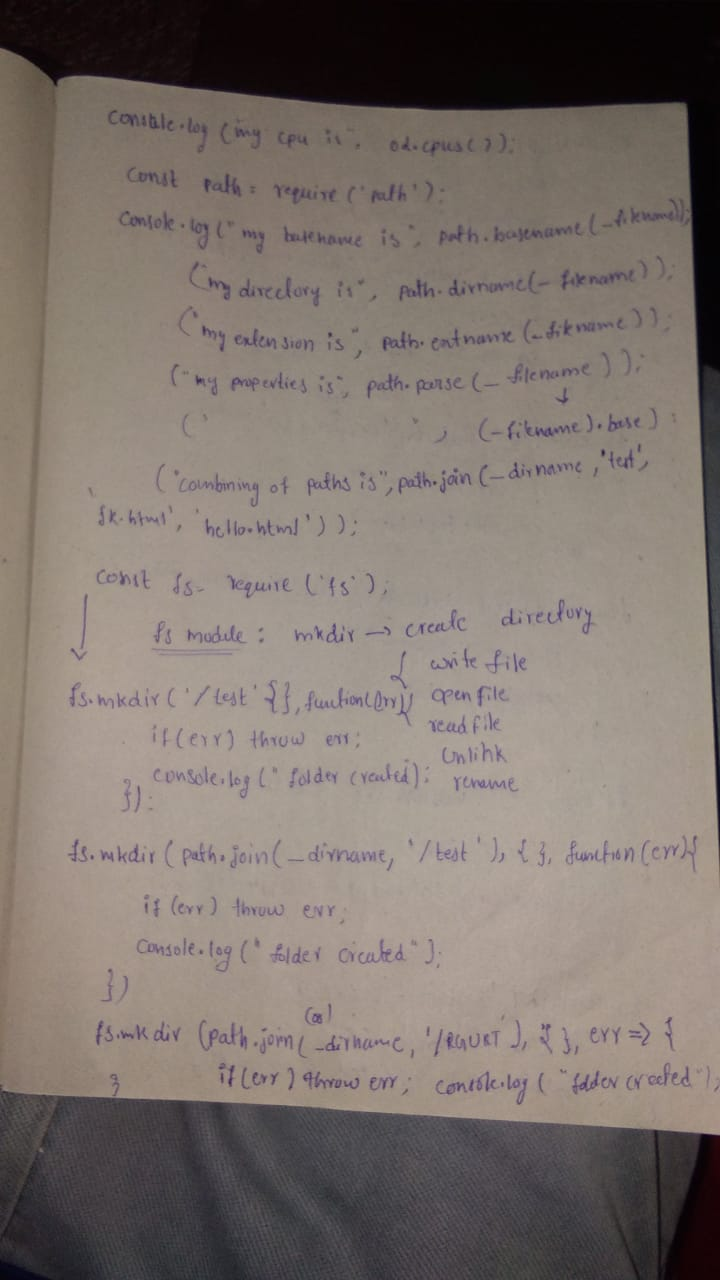 console.log ("my cpu is", od.cpus());
const path = require ('path');
console.log (" my basename is", path.basename (_filename));
("my directory is", path.dirname(_ filename));
("my extension is", path.extname (_filename));
("my properties is", path.parse (_ filename));
(" ", (_filename).base);
("combining of paths is", path.join (_dirname, 'test',
'hello.html'));
const fs= require ('fs');
fs module : mkdir → create directory
{ write file
fs.mkdir ('/test' {}, function(err){ open file
if(err) throw err; read file
unlink
console.log (" folder created); rename
});
fs.mkdir ( path.join( _dirname, '/test'), { }, function (err){
if (err) throw err;
console.log (" folder created");
})
(or)
fs.mkdir (path.join( _dirname, '/RGUKT'), {}, err => {
if (err) throw err; console.log ( "folder created");
}